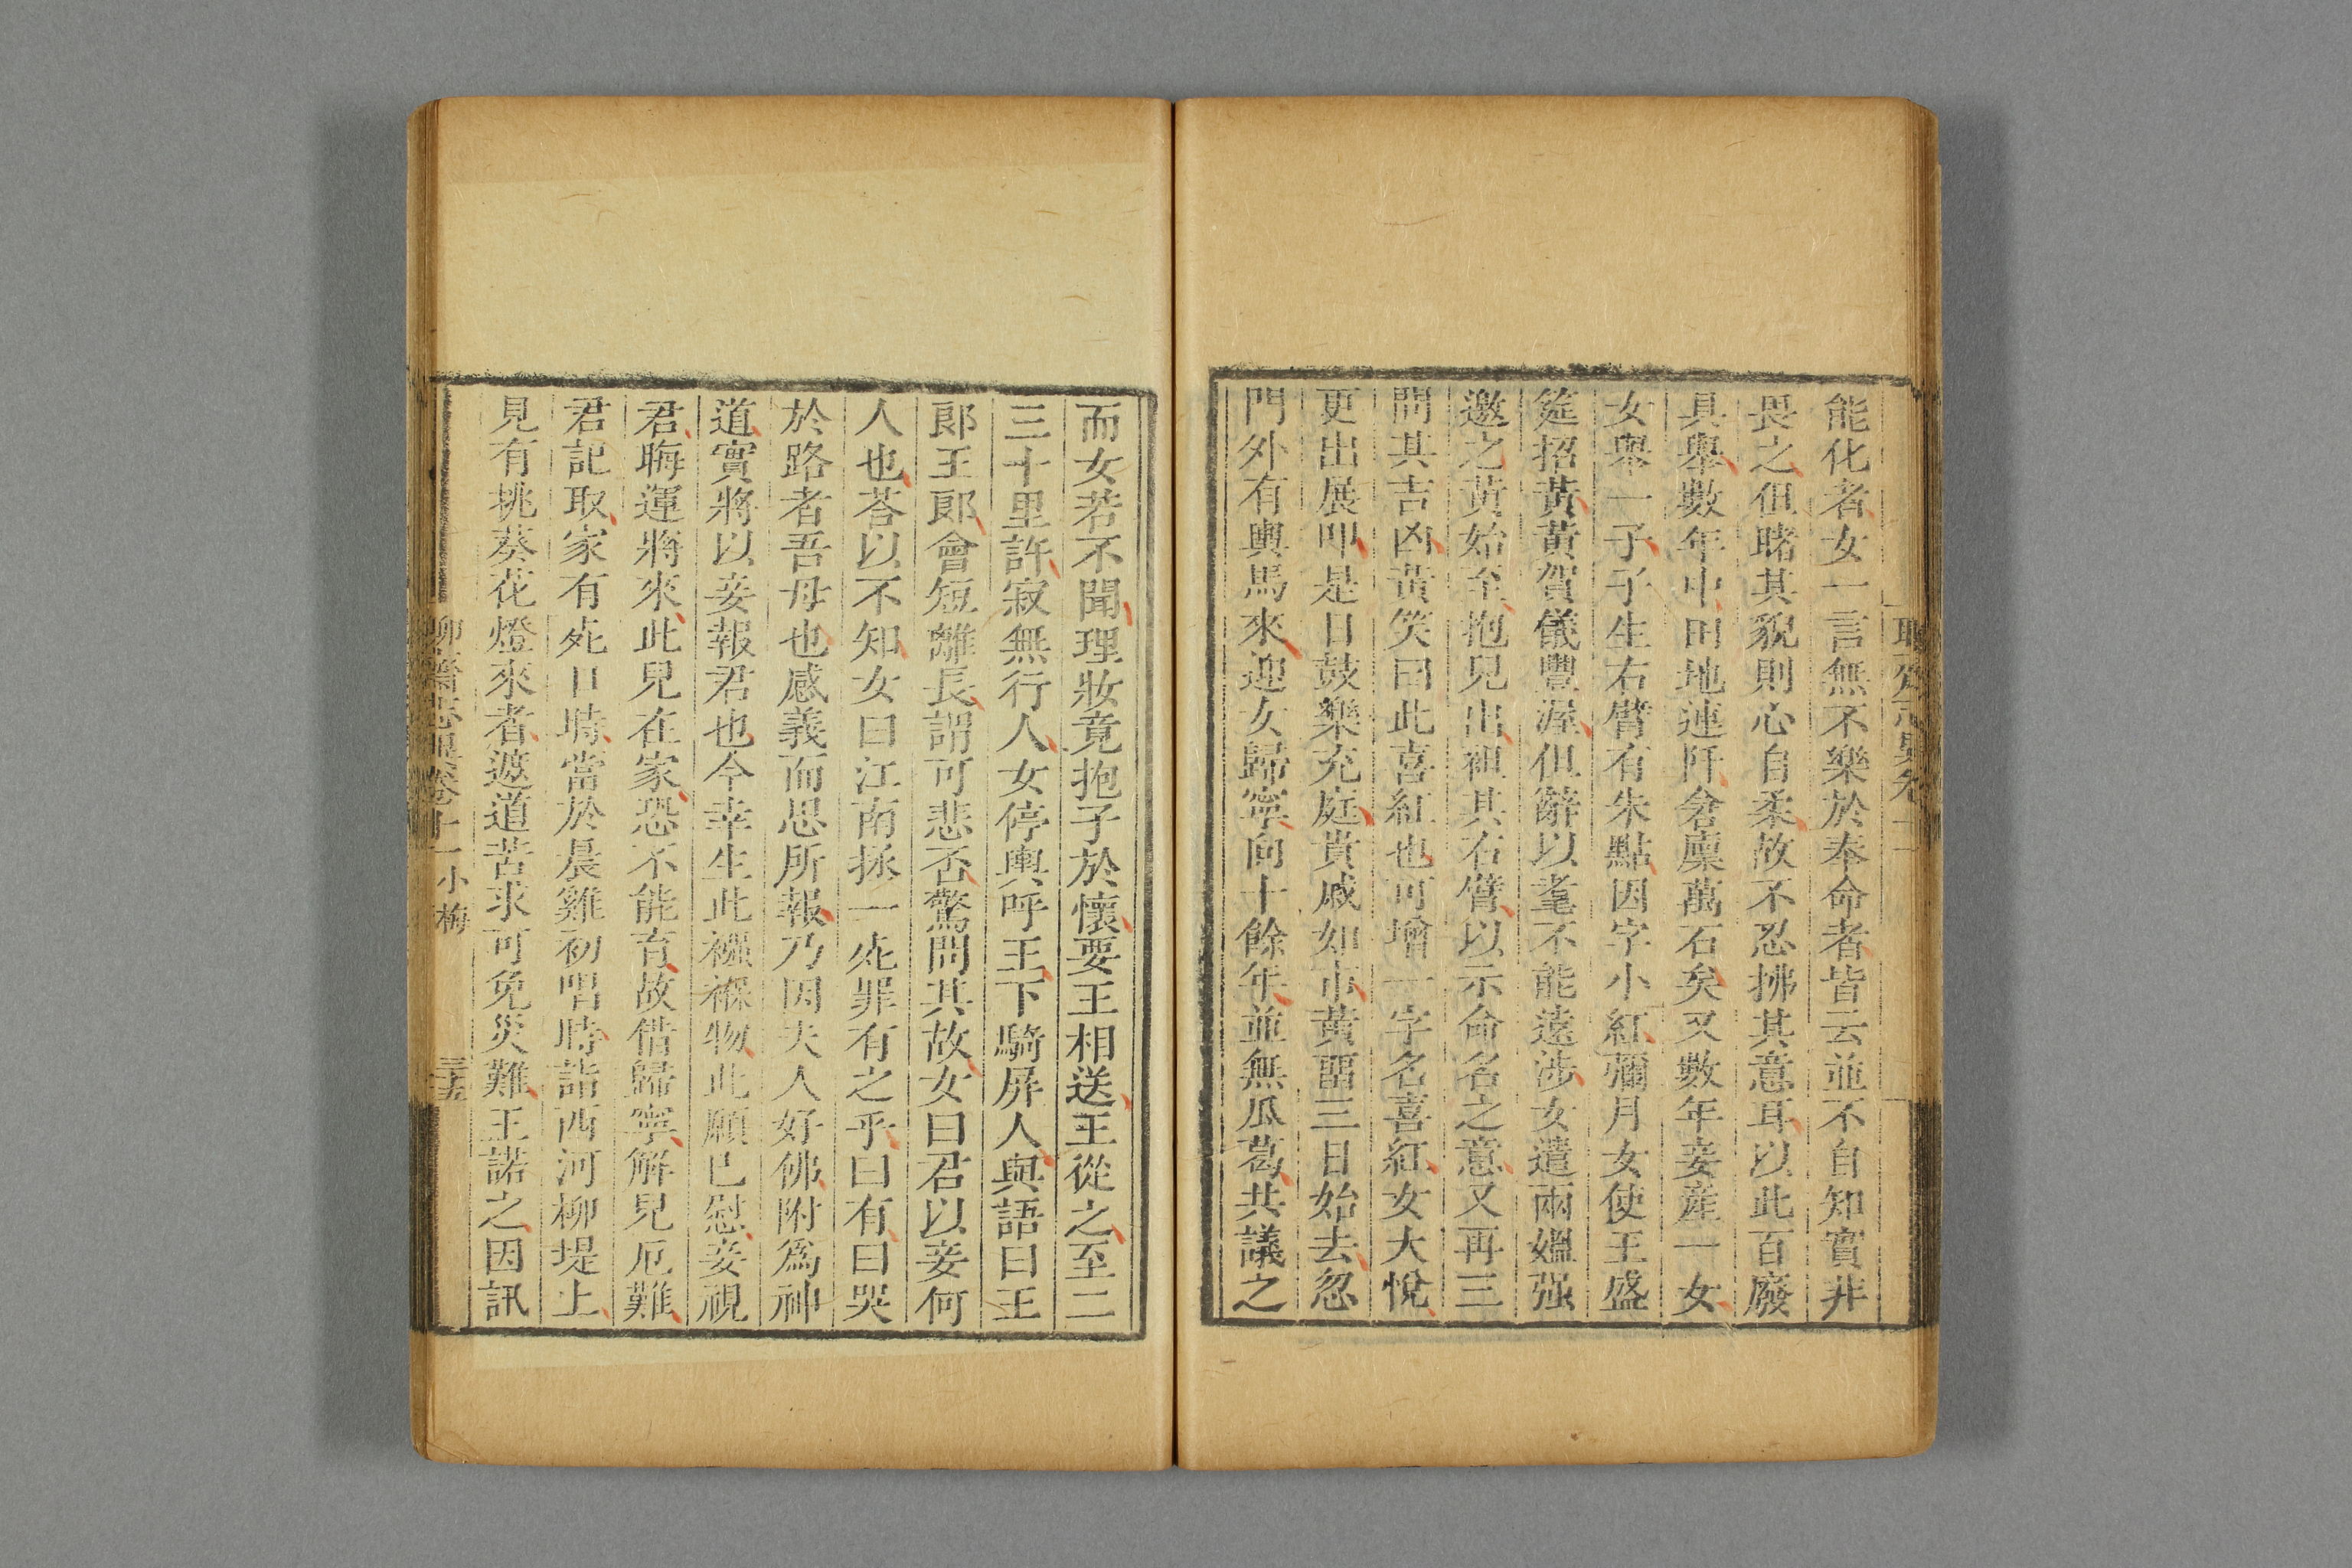 聊齋志異卷十一
能化者女一言無不樂於奉命者皆云並不自知實非
畏之但睹其貌則心自柔故不忍拂其意耳以此百廢
具舉數年中田地連阡倉廩萬石矣又數年妾産一女
女舉一子子生右臂有朱點因字小紅彌月女使王盛
筵招黃黃賀儀豐渥但辭以耄不能遠涉女遣兩媼强
邀之黃始至抱兒出袒其右臂以示命名之意又再三
問其吉凶黃笑曰此喜紅也可增一字名喜紅女大悅
更出展叩是日鼓樂充庭貴戚如市黃畱三日始去忽
門外有輿馬來迎女歸寧向十餘年並無瓜葛共議之
而女若不聞理妝竟抱子於懷要王相送王從之至二
三十里許寂無行人女停輿呼王下騎屏人與語曰王
郎王郎會短離長謂可悲否驚問其故女曰君以妾何
人也荅以不知女曰江南拯一死罪有之乎曰有曰哭
於路者吾母也感義而思所報乃因夫人好佛附爲神
道實將以妾報君也今幸生此襁褓物此願已慰妾視
君晦運將來此兒在家恐不能育故借歸寧解兒厄難
君記取家有死日時當於晨雞初唱時詣西河柳堤上
見有挑葵花燈來者遮道苦求可免災難王諾之因訊
聊齋志異卷十一 小梅 三十五